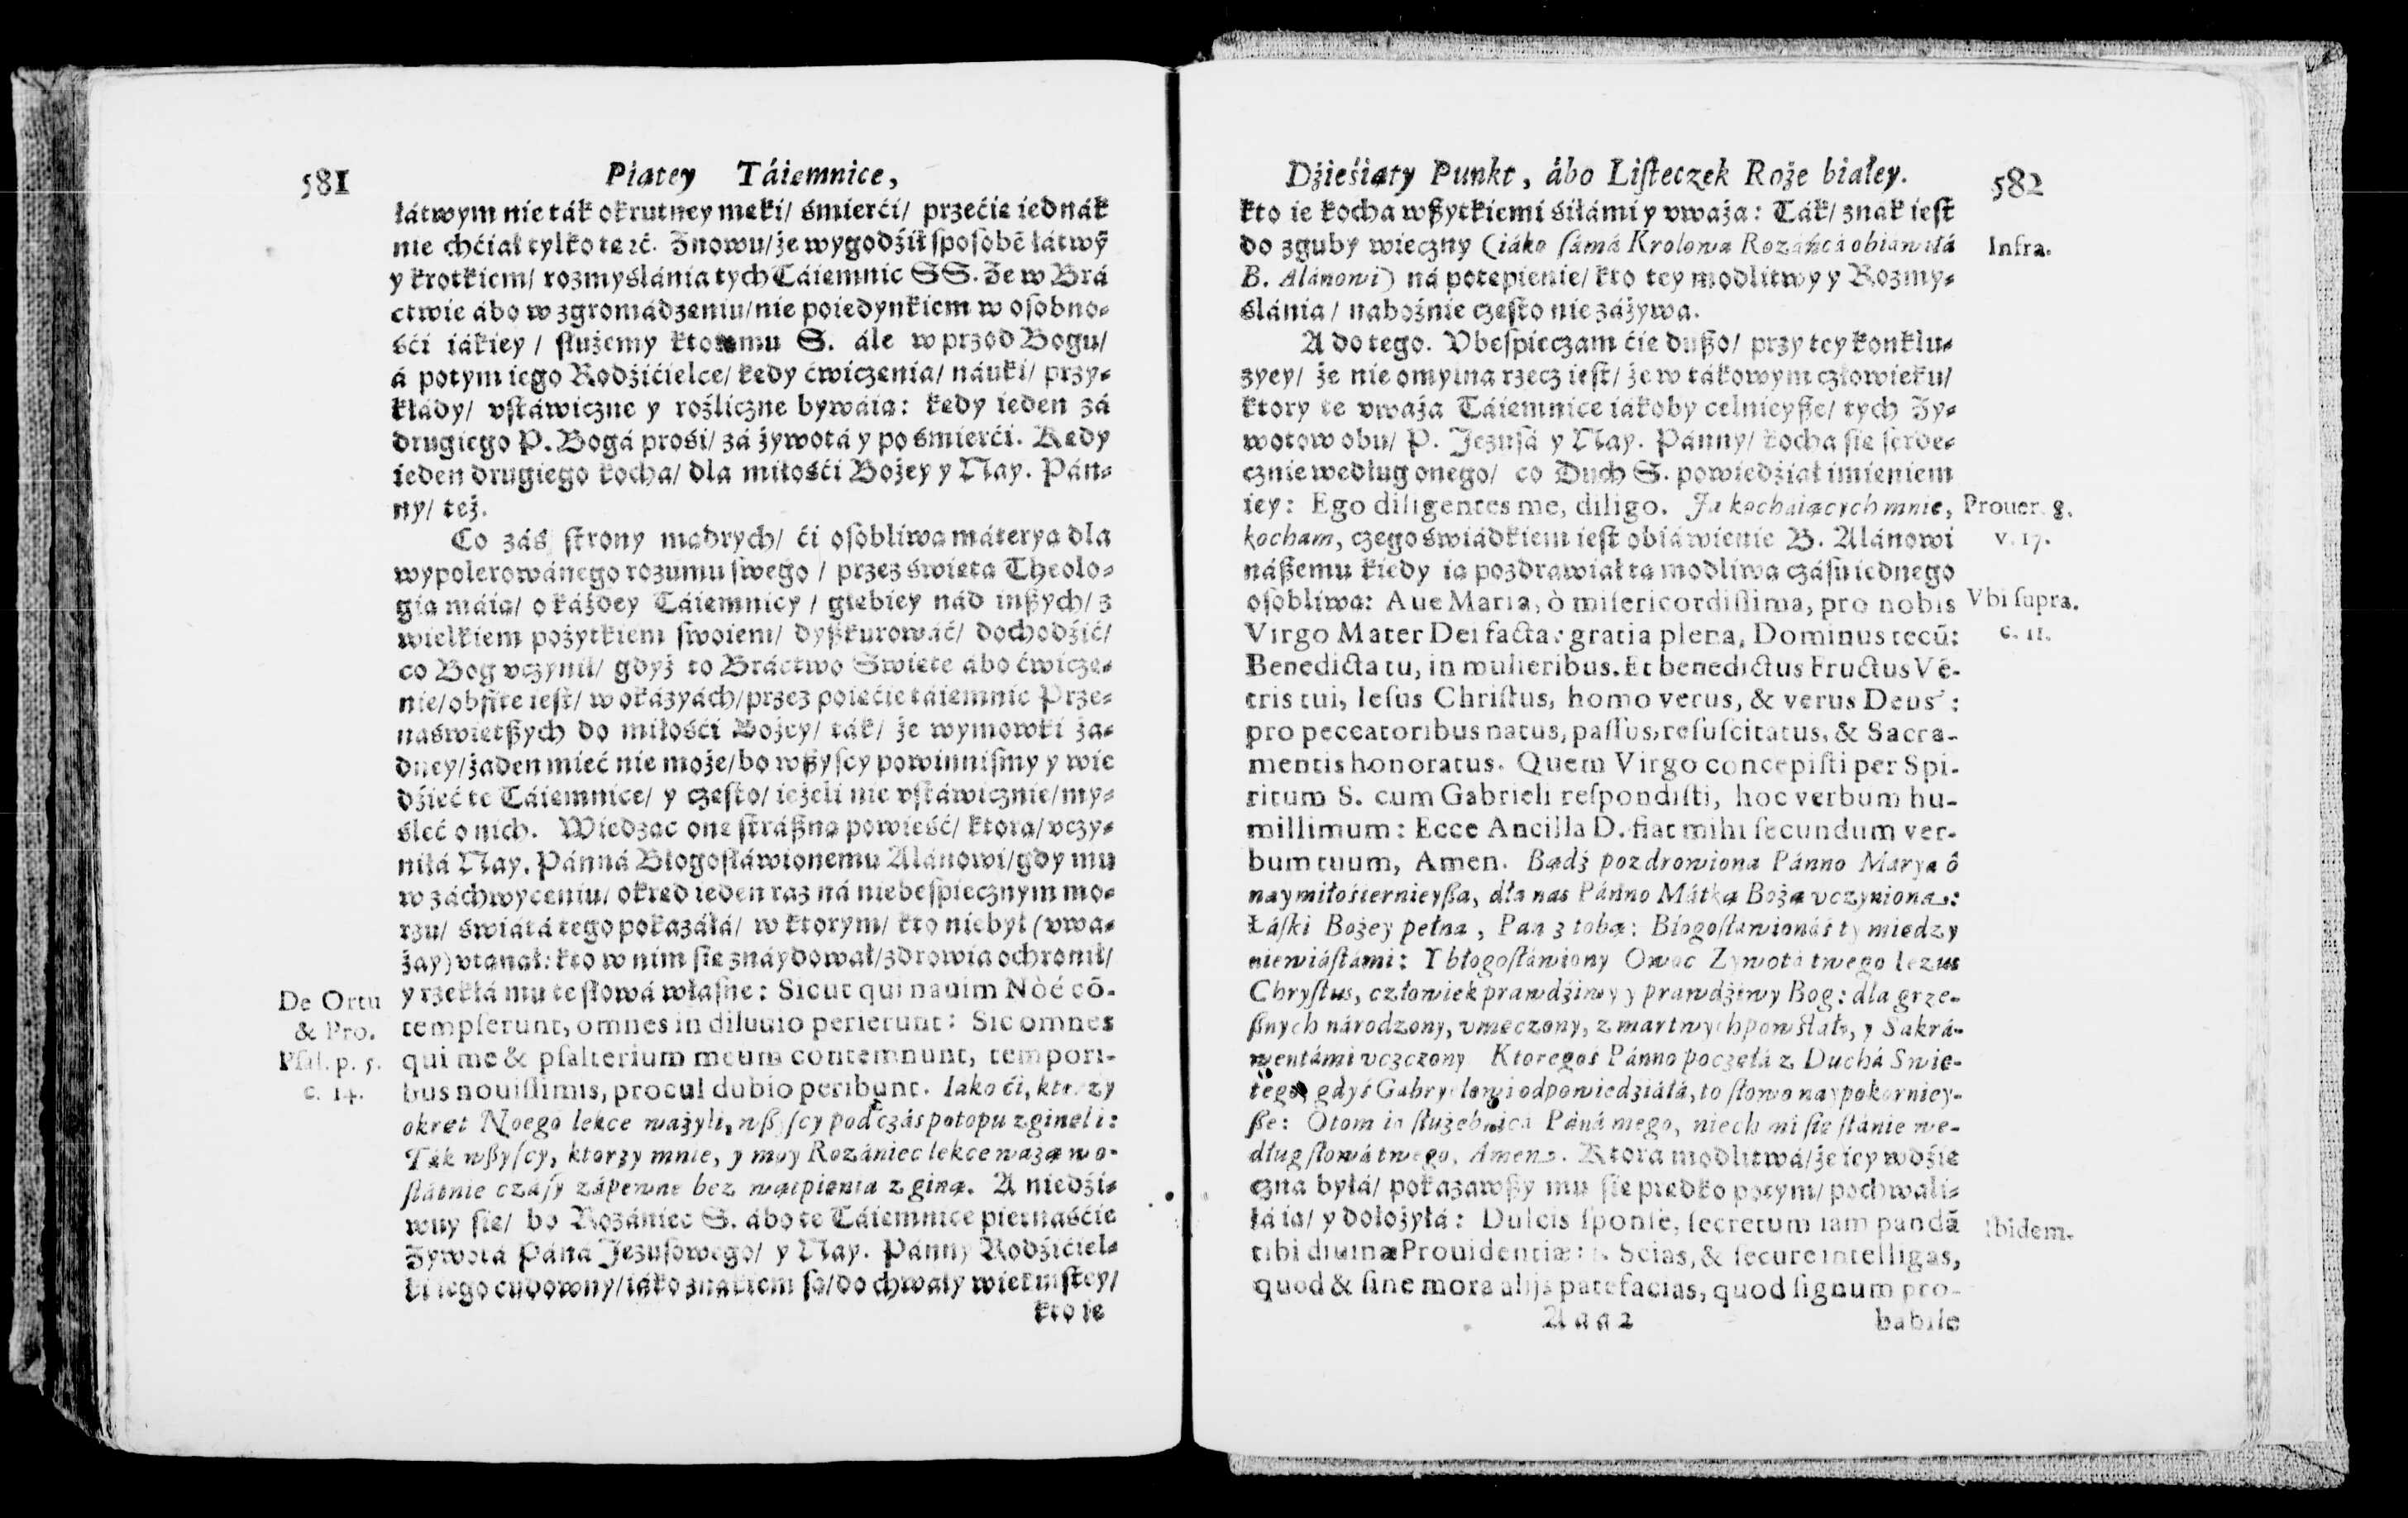 581
Piatey Táiemnice,
łátwym nie ták okrutney męki/ śmierći/ przećię iednák
nie chćiał tylko te ać. Znowu/ że wygodźił sposobẽ łátwỹ
y krotkiem/ rozmyślánia tych Táiemnic SS. Że w Brá
ctwie ábo w zgromádzeniu/ nie poiedynkiem w osobno-
śći iákiey / służemy ktoremu S. ále w przod Bogu/
á potym iego Rodźićielce/ kędy ćwiczenia/ náuki/ przy-
kłády/ vstáwiczne y rożliczne bywáią: kędy ieden zá
drugiego P. Bogá prośi/ zá żywotá y po śmierći. Kędy
ieden drugiego kocha/ dla miłośći Bożey y Nay. Pán-
ny/ też.
Co záś strony mądrych/ ći osobliwą máteryą dla
wypolerowánego rozumu swego / przez świętą Theolo-
gią máią/ o káżdey Táiemnicy / głębiey nád inßych/ z
wielkiem pożytkiem swoiem/ dyßkurowáć/ dochodźić/
co Bog vczynił/ gdyż to Bráctwo Swięte ábo ćwicze-
nie/ obfite iest/ w okázyách/ przez poięćie táiemnic Prze-
naświętßych do miłośći Bożey/ ták/ że wymowki ża-
dney/ żaden mieć nie może/ bo wßyscy powinnismy y wie
dźieć te Táiemnice/ y często/ ieżeli nie vstáwicznie/ my-
śleć o nich. Wiedząc onę stráßną powieść/ ktorą/ vczy-
niłá Nay. Pánná Błogosłáwionemu Alánowi/ gdy mu
w záchwyceniu/ okręd ieden raz ná niebespiecznym mo-
rzu/ świátá tego pokazáłá/ w ktorym/ kto niebył (vwa-
żay) vtonął: kto w nim się znáydował/ zdrowia ochronił/
y rzekłá mu te słowá własne: Sicut qui nauim Nòé cõ-
De Ortu
& Pro.
Psal. p. 5.
c. 14.
tempserunt, omnes in diluuio perierunt: Sic omnes
qui me & psalterium meum contemnunt, tempori-
bus nouissimis, procul dubio peribunt. Iako ći, ktorzy
okręt Noego lekce ważyli, wßyscy podczás potopu zginęli:
Ták wßyscy, ktorzy mnie, y moy Rozániec lekce ważą w o-
státnie czásy zápewne bez wątpienia zginą. A niedźi-
wuy się/ bo Rozániec S. ábo te Táiemnice piętnaśćie
Żywotá Páná Jezusowego/ y Nay. Pánny Rodźićiel-
ki iego cudowny/ iáko znákiem są/ do chwały wiekuistey/
kto ie
Dźieśiąty Punkt, ábo Listeczek Roże białey.
582
kto ie kocha wßytkiemi śiłámi y vważa: Ták/ znák iest
do zguby wieczny (iáko sámá Krolowa Rozáńcá obiáwiłá
Infra.
B. Alánowi) ná potępienie/ kto tey modlitwy y Rozmy-
ślánia/ nabożnie często nie záżywa.
A do tego. Vbespieczam ćię dußo/ przy tey konklu-
zyey/ że nie omylna rzecz iest/ że w tákowym człowieku/
ktory te vważa Táiemnice iákoby celnieyße/ tych Ży-
wotow obu/ P. Jezusá y Nay. Pánny/ kocha się serde-
cznie według onego/ co Duch S. powiedźiał imieniem
iey: Ego diligentes me, diligo. Ja kochaiących mnie,
Prouer. 8.
v. 17.
kocham, czego świádkiem iest obiáwienie B. Alánowi
náßemu kiedy ią pozdrawiał tą modlitwą czásu iednego
osobliwą: Aue Maria, ò misericordissima, pro nobis
Vbi supra.
c. 11.
Virgo Mater Dei facta: gratia plena, Dominus tecũ:
Benedicta tu, in mulieribus. Et benedictus Fructus Vẽ-
tris tui, Iesus Christus, homo verus, & verus Deus:
pro peccatoribus natus, passus, resuscitatus, & Sacra-
mentis honoratus. Quem Virgo concepisti per Spi-
ritum S. cum Gabrieli respondisti, hoc verbum hu-
millimum: Ecce Ancilla D. fiat mihi secundum ver-
bum tuum, Amen. Bądź pozdrowiona Pánno Marya ô
naymiłosiernieyßa, dla nas Pánno Mátką Bożą vczyniona:
Łáski Bożey pełna, Pan z tobą: Błogosławionáś ty między
niewiástámi: Y błogosłáwiony Owoc Zywotá twego Iezus
Chrystus, człowiek prawdźiwy y prawdźiwy Bog: dla grze-
ßnych národzony, vmęczony, z martwych powstáły, y Sakrá-
mentámi vczczony Ktoregoś Pánno poczęłá z Duchá Swię-
tego, gdyś Gabryelowi odpowiedziáłá, to słowo naypokorniey-
ße: Otom ia służebnicá Páná mego, niech mi się stánie we-
dług słowá twego. Amen. Ktora modlitwá/ że iey wdźię
czna byłá/ pokazawßy mu się prędko potym/ pochwali-
łá ią/ y dołożyłá: Dulcis sponse, secretum iam pandã
Ibidem.
tibi diuinæ Prouidentiæ: Scias, & secure intelligas,
quod & sine mora alijs patefacias, quod signum pro-
Aaa2
babile